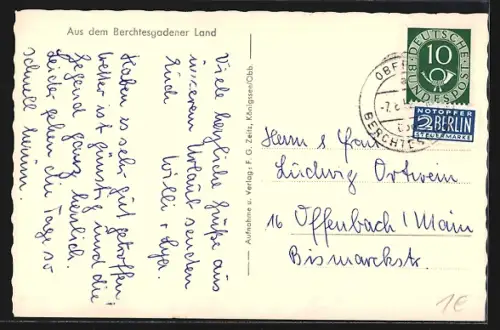 Aus dem Berchtesgadener Land
Viele herzliche Grüße aus
unserem Urlaub senden
Euch Willi + Lya.
Haben es sehr gut getroffen,
Wetter ist günstig und die
Gegend ganz herrlich.
Leider gehen die Tage so
schnell herum.
Aufnahme u. Verlag: F. G. Zeitz, Königssee/Obb.
DEUTSCHE BUNDESPOST
10
NOTOPFER
2 BERLIN
STEUERMARKE
BERCHTES
Herrn & Frau
Ludwig Ortwein
16 Offenbach / Main
Bismarckstr.
1€